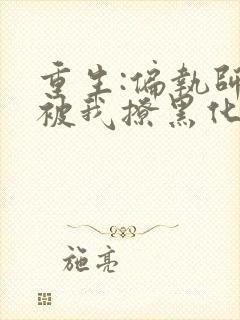 重生:偏執師
被我撩黑化
施亮